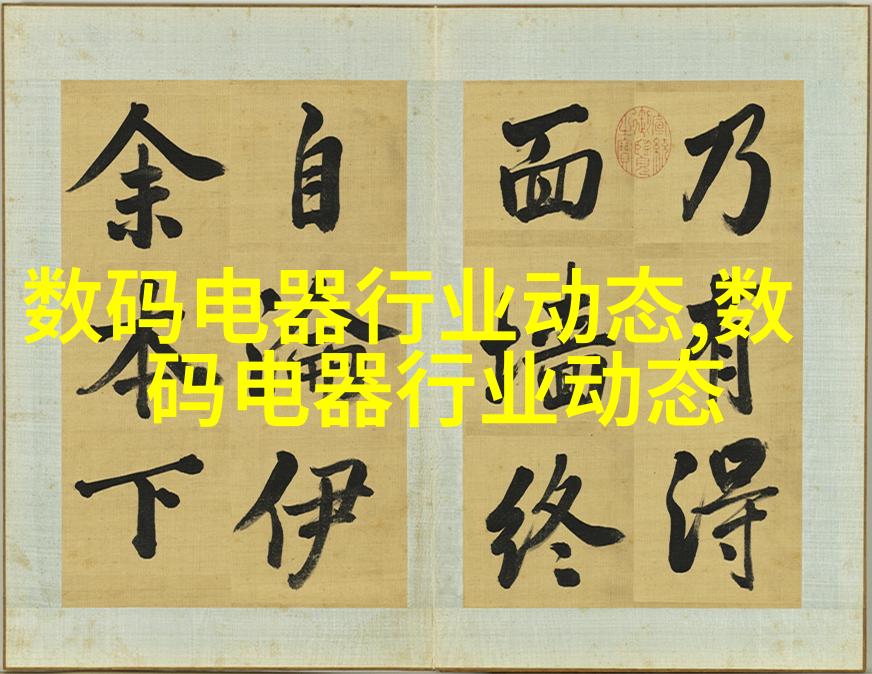 乃有得
面墙终
自沦伊
余本下
数码电器行业动态,数
码电器行业动态